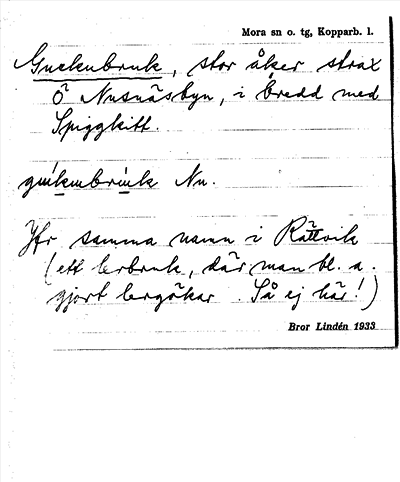 Mora sn o. tg, Kopparb. l.
Guckubruk, stor åker strax
Ö Nusnäsbyn, i bredd med
Spiggkitt.
Nu.
Jfr samma namn i Rättvik
(ett lerbruk, där man bl. a.
gjort lergökar. Så ej här!)
Bror Lindén 1933